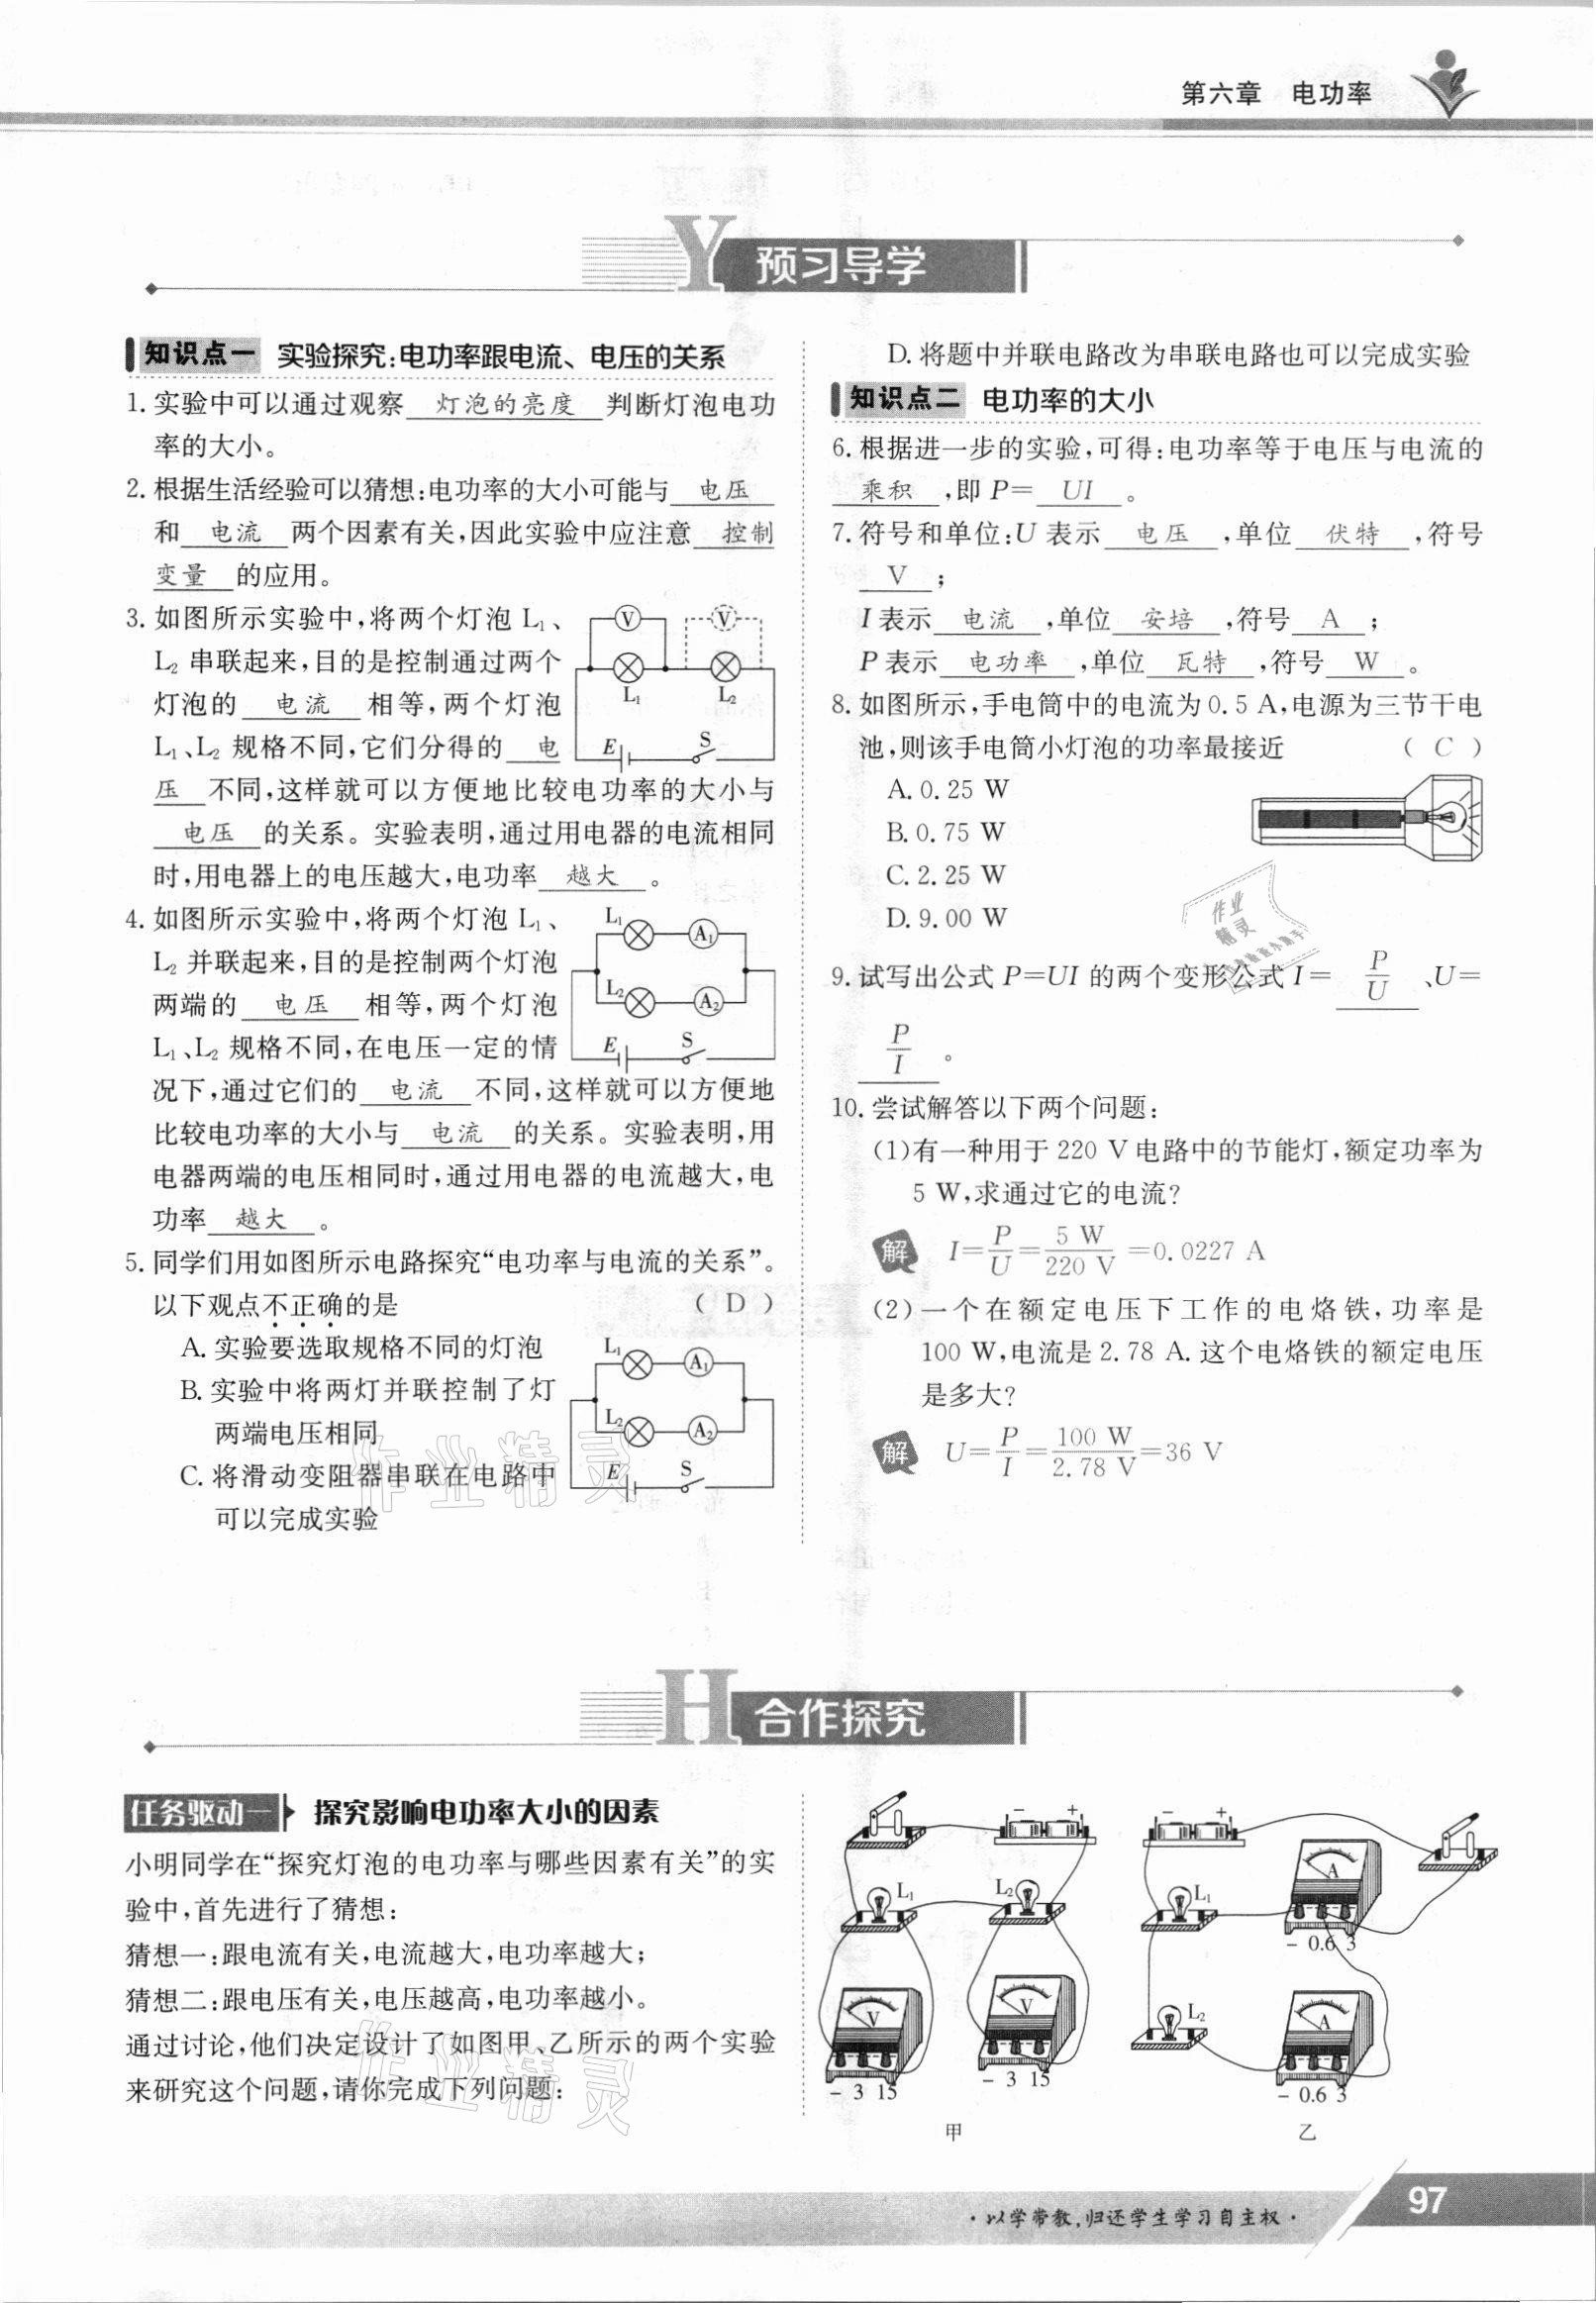 第六章 电功率
Y 预习导学
知识点一 实验探究:电功率跟电流、电压的关系
1. 实验中可以通过观察 灯泡的亮度 判断灯泡电功
率的大小。
2. 根据生活经验可以猜想:电功率的大小可能与 电压
和 电流 两个因素有关,因此实验中应注意 控制
变量 的应用。
3. 如图所示实验中,将两个灯泡 L₁、
L₂ 串联起来,目的是控制通过两个
灯泡的 电流 相等,两个灯泡
L₁、L₂ 规格不同,它们分得的 电
压 不同,这样就可以方便地比较电功率的大小与
电压 的关系。实验表明,通过用电器的电流相同
时,用电器上的电压越大,电功率 越大 。
V V
L₁ L₂
E S
4. 如图所示实验中,将两个灯泡 L₁、
L₂ 并联起来,目的是控制两个灯泡
两端的 电压 相等,两个灯泡
L₁、L₂ 规格不同,在电压一定的情
况下,通过它们的 电流 不同,这样就可以方便地
比较电功率的大小与 电流 的关系。实验表明,用
电器两端的电压相同时,通过用电器的电流越大,电
功率 越大 。
L₁ A₁
L₂ A₂
E S
5. 同学们用如图所示电路探究“电功率与电流的关系”。
以下观点不正确的是 ( D )
A. 实验要选取规格不同的灯泡
B. 实验中将两灯并联控制了灯
两端电压相同
C. 将滑动变阻器串联在电路中
可以完成实验
L₁ A₁
L₂ A₂
E S
D. 将题中并联电路改为串联电路也可以完成实验
知识点二 电功率的大小
6. 根据进一步的实验,可得:电功率等于电压与电流的
乘积 ,即 P= UI 。
7. 符号和单位:U 表示 电压 ,单位 伏特 ,符号
V ;
I 表示 电流 ,单位 安培 ,符号 A ;
P 表示 电功率 ,单位 瓦特 ,符号 W 。
8. 如图所示,手电筒中的电流为 0.5 A,电源为三节干电
池,则该手电筒小灯泡的功率最接近 ( C )
A. 0.25 W
B. 0.75 W
C. 2.25 W
D. 9.00 W
作业
精灵
9. 试写出公式 P=UI 的两个变形公式 I= P/U 、U=
P/I 。
10. 尝试解答以下两个问题:
(1)有一种用于 220 V 电路中的节能灯,额定功率为
5 W,求通过它的电流?
解 I=P/U=5 W/220 V=0.0227 A
(2)一个在额定电压下工作的电烙铁,功率是
100 W,电流是 2.78 A. 这个电烙铁的额定电压
是多大?
解 U=P/I=100 W/2.78 V=36 V
作业精灵
H 合作探究
任务驱动一 探究影响电功率大小的因素
小明同学在“探究灯泡的电功率与哪些因素有关”的实
验中,首先进行了猜想:
猜想一:跟电流有关,电流越大,电功率越大;
猜想二:跟电压有关,电压越高,电功率越小。
通过讨论,他们决定设计了如图甲、乙所示的两个实验
来研究这个问题,请你完成下列问题:
作业精灵
− +
L₁ L₂
V V
− 3 15
− 3 15
甲
− +
A
L₁
− 0.6 3
L₂
A
− 0.6 3
乙
·以学带教,归还学生学习自主权·
97